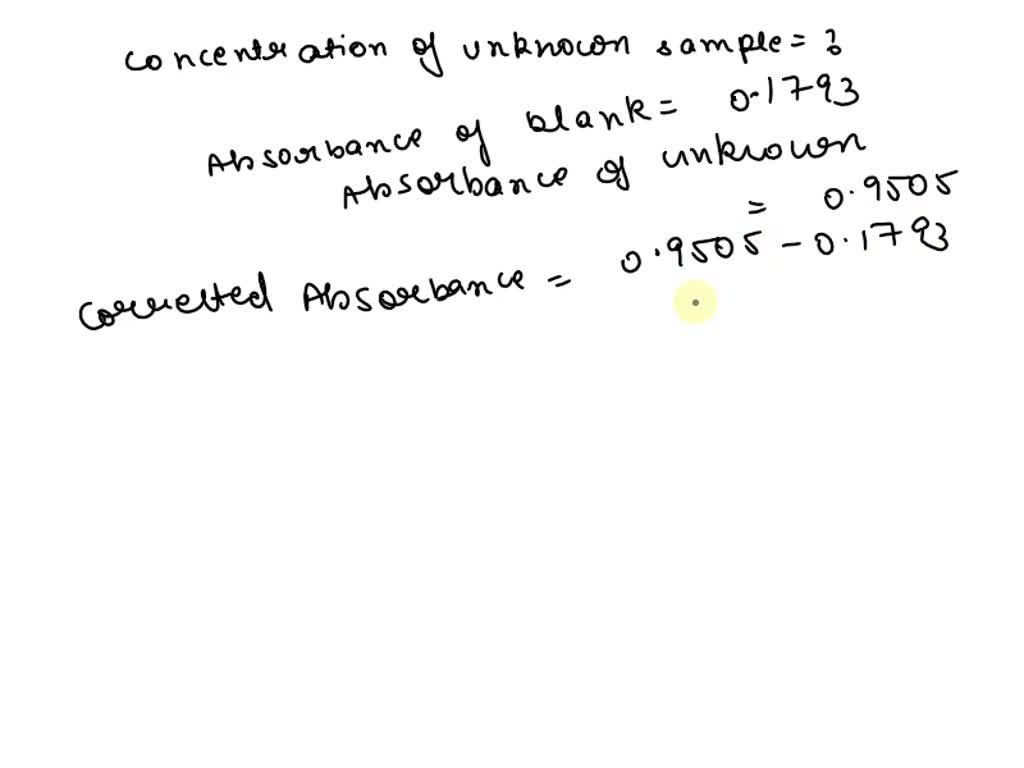 concentration of unknown sample = ?
Absorbance of blank = 0.1793
Absorbance of unknown
= 0.9505
Corrected Absorbance = 0.9505 - 0.1793